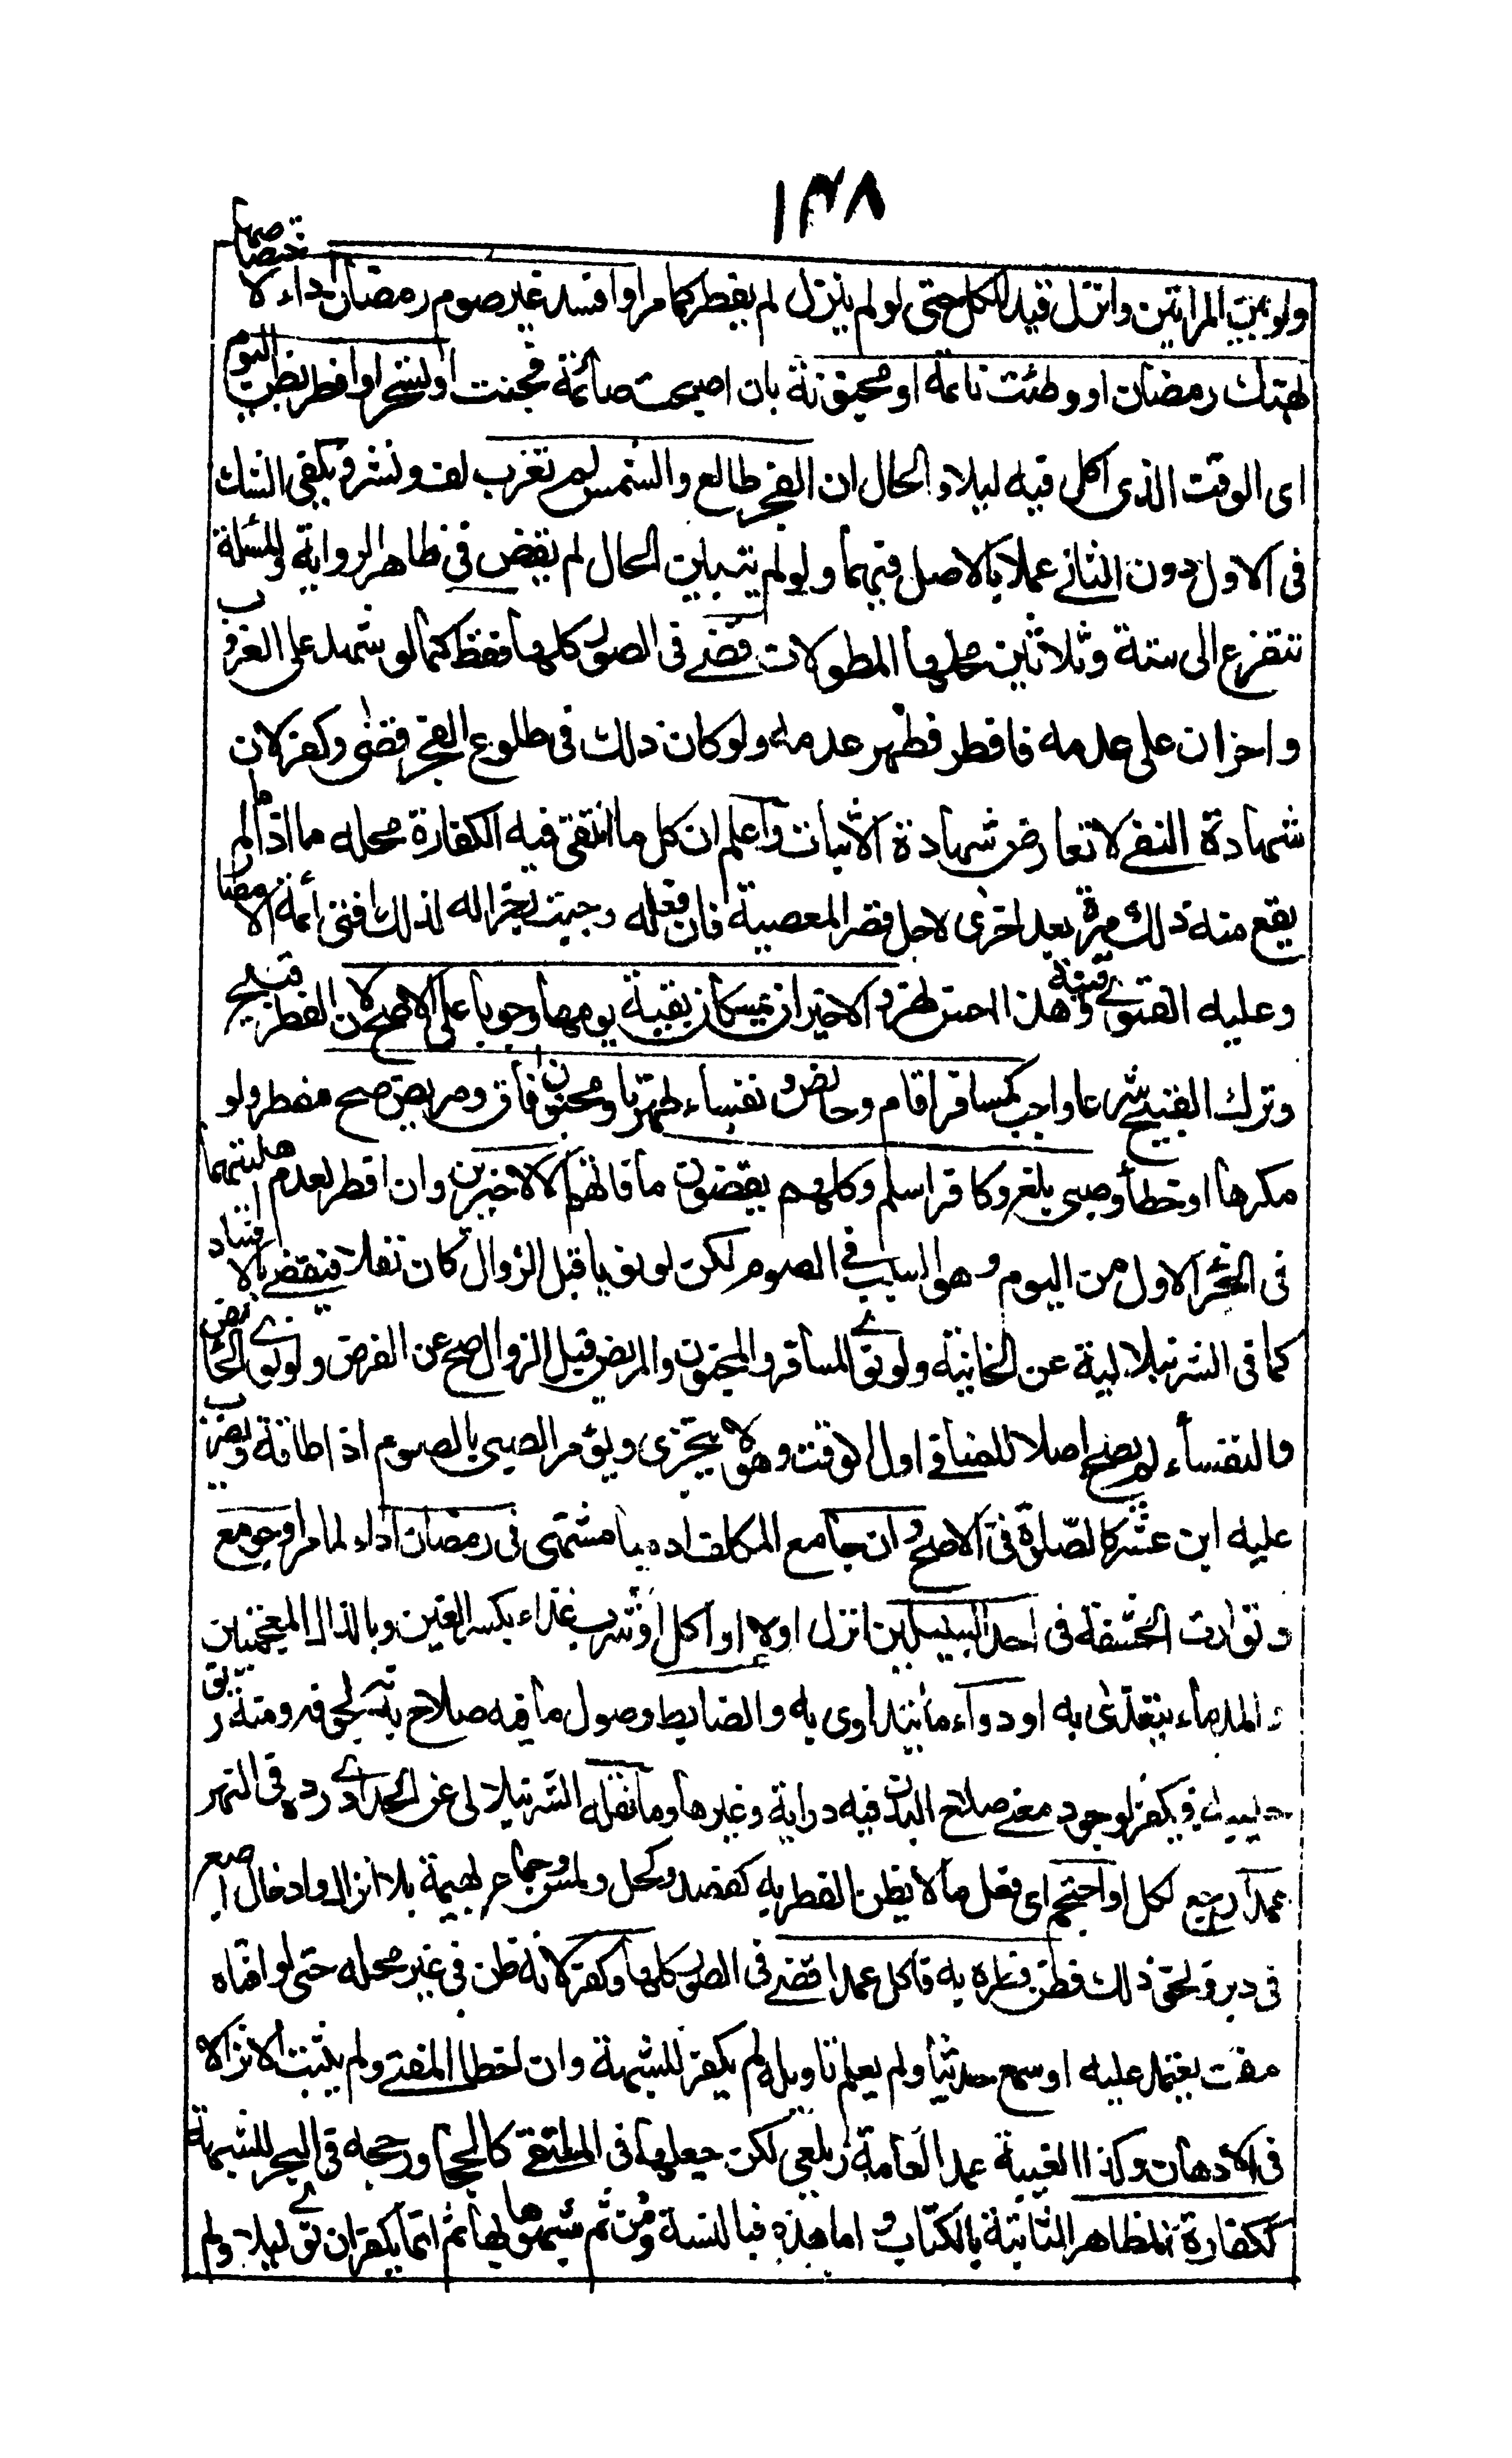 ١٣٨
ولو بين المراتين وانزل قيد للكل حتى لو لم ينزل لم يفطر كما مر او افسد غير صوم رمضان اداء لاختصاصها
لهتك رمضان او وطئت نائمة او مجنونة بان اصبحت صائمة فجنت او تسحر او افطر يظن اليوم
اى الوقت الذى اكل فيه ليلا والحال ان الفجر طالع والشمس لم تغرب لف ونشر ويكفى الشك
فى الاول دون الثانى عملا بالاصل فيهما ولو لم يتبين الحال لم يقض فى ظاهر الرواية والمسئلة
تتفرع الى ستة وثلاثين محلها المطولات قضى فى الصور كلها فقط كما لو شهدا على الغروب
واخران على عدمه فافطر فظهر عدمه ولو كان ذلك فى طلوع الفجر قضى وكفر لان
شهادة النفى لا تعارض شهادة الاثبات واعلم ان كل ما انتفى فيه الكفارة محله ما اذا لم
يقع منه ذلك مرة بعد اخرى لاجل قصد المعصية فان فعله وجبت زجرا له لذلك افتى ائمة الامصار
وعليه الفتوى قنية وهذا احسن نهر والاخيران يمسكان بقية يومهما وجوبا على الاصح لان الفطر قبيح
وترك القبيح شرعا واجب كمسافر اقام وحائض ونفساء طهرتا ومجنون فاق ومريض صح مفطر ولو
مكرها او خطأ وصبى بلغ وكافر اسلم وكلهم يقضون ما فاتهم الا الاخيرين وان افطر لعدم اهليتهما
فى الجزء الاول من اليوم وهو السبب فى الصوم لكن لو نويا قبل الزوال كان نفلا فيقضى بالافساد
كما فى الشرنبلالية عن الخانية ولو نوى المسافر والمجنون والمريض قبل الزوال صح عن الفرض ولو نوى الحائض
والنفساء لم يصح اصلا للمنافى اول الوقت وهو لا يتجزى ويؤمر الصبى بالصوم اذا اطاقه ويضرب
عليه ابن عشر كالصلوة فى الاصح وان جامع المكلف ادميا مشتهى فى رمضان اداء لما مر او جومع
وتوارت الحشفة فى احد السبيلين انزل او لا او اكل او شرب غذاء بكسر الغين وبالذال المعجمتين
والمد ماء يتغذى به او دواء ما يتداوى به والضابط وصول ما فيه صلاح بدنه لجوفه ومنه ريق
حبيبه فيكفر لوجود معنى صلاح البدن فيه دراية وغيرها وما نقله الشرنبلالى عن الحدادى رده فى النهر
عمدا راجع لكل او احتجم اى فعل ما لا يظن الفطر به كفصد وكحل ولمس وجماع بهيمة بلا انزال وادخال اصبع
فى دبر ونحو ذلك فظن فطره به فاكل عمدا قضى فى الصور كلها وكفر لانه ظن فى غير محله حتى لو افتاه
مفت يعتمد عليه او سمع حديثا ولم يعلم تاويله لم يكفر للشبهة وان اخطا المفتى ولم يثبت الاثر الا
فى الادهان وكذا الغيبة عند العامة زيلعى لكن جعلها فى الملتقى كالحجامة ورجحه فى البحر للشبهة
ككفارة المظاهر الثابتة بالكتاب واما هذه فبالسنة ومن ثم شبهوها بها ثم انما يكفر ان نوى ليلا ولم